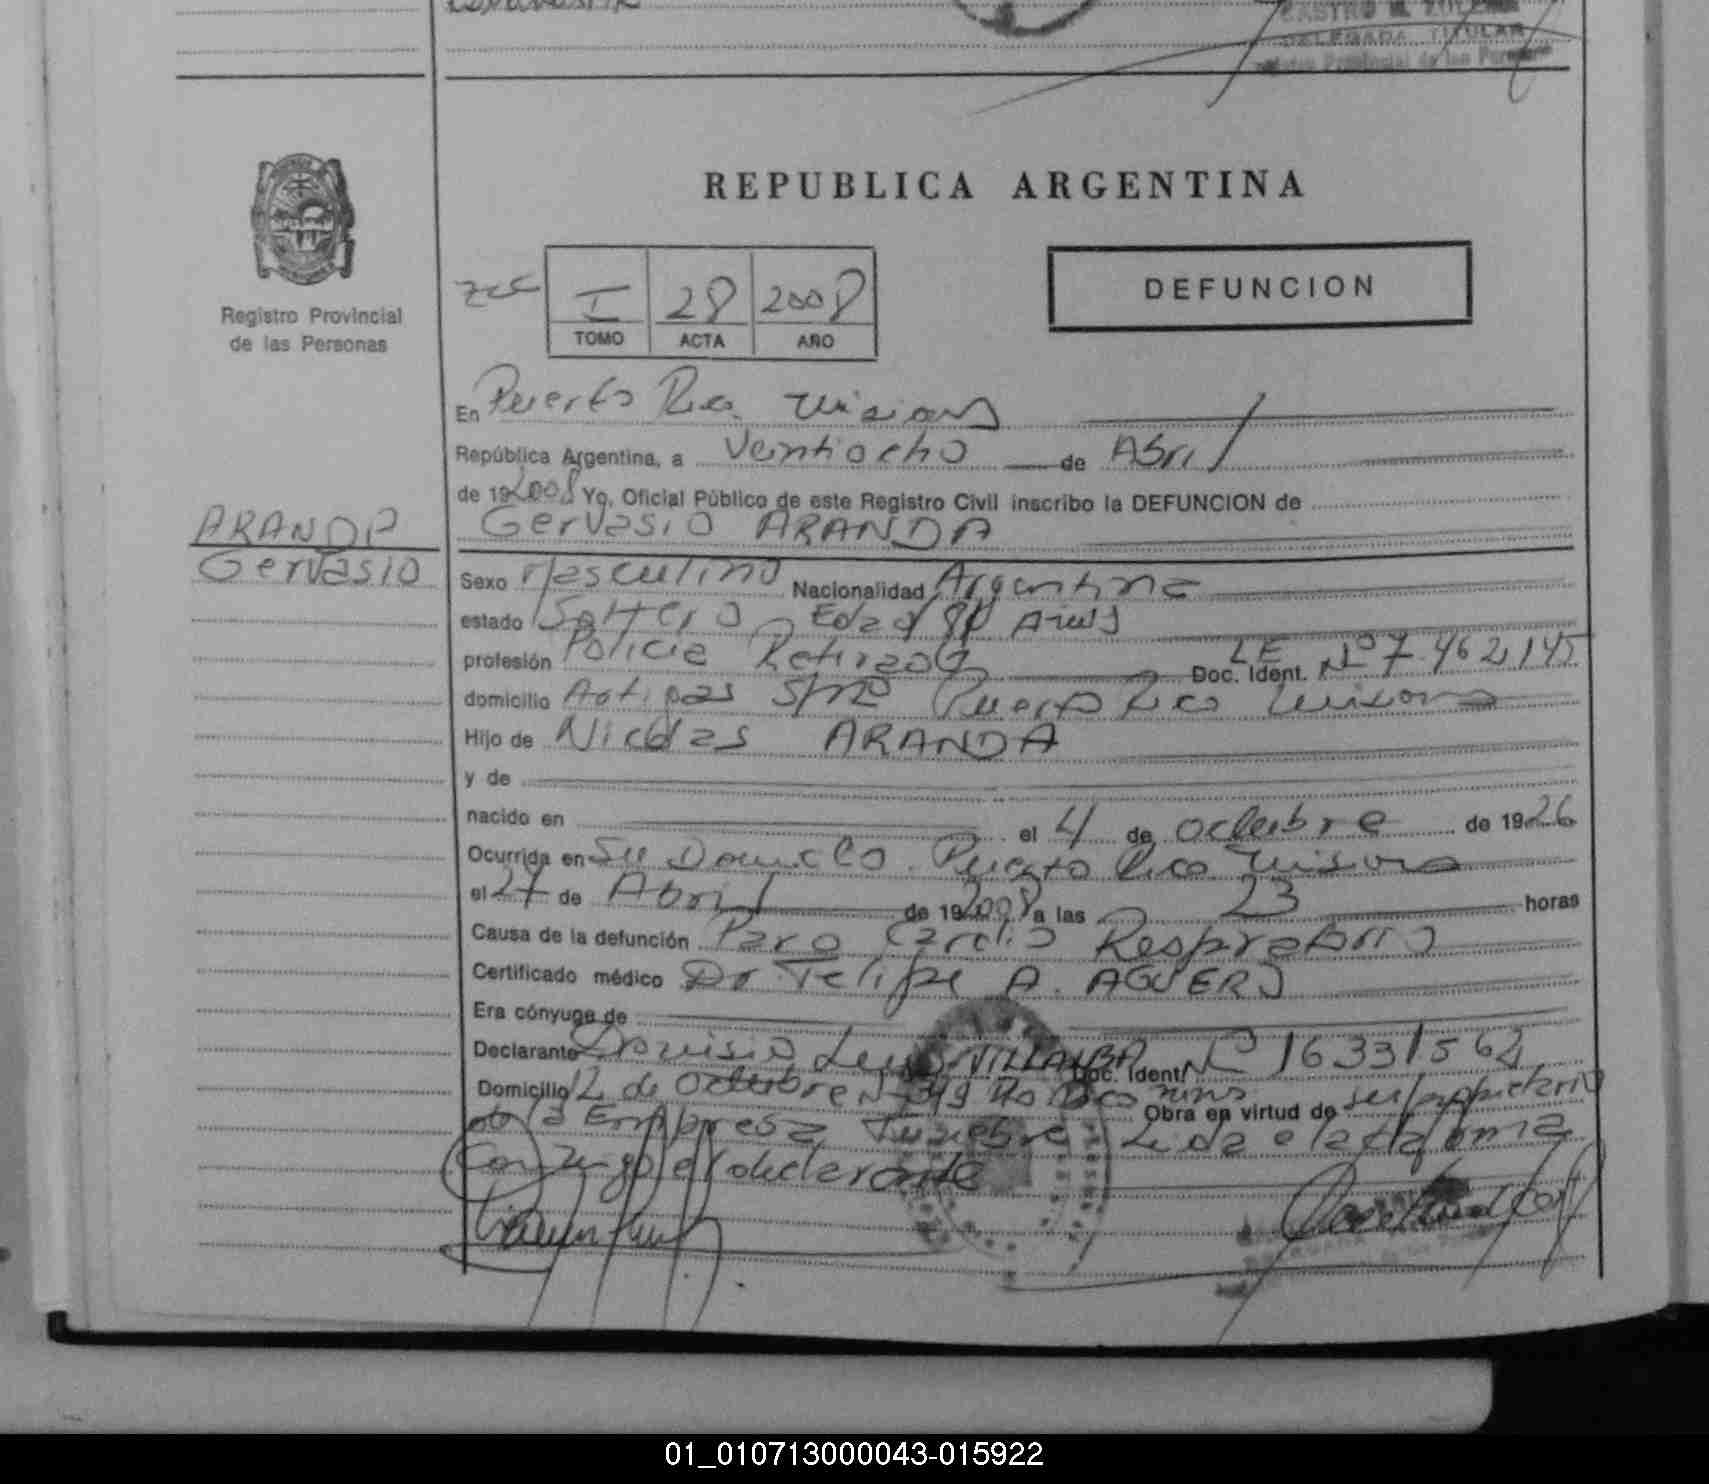 CASTRO M. ZULEMA
DELEGADA TITULAR
Registro Provincial de las Personas
REPUBLICA ARGENTINA
I 28 2008
TOMO ACTA AÑO
DEFUNCION
Registro Provincial
de las Personas
En Puerto Rico Misiones
República Argentina, a Veintiocho de Abril
de 19 2008 Yo, Oficial Público de este Registro Civil inscribo la DEFUNCION de
ARANDA
Gervasio ARANDA
Gervasio
Sexo Masculino Nacionalidad Argentina
estado Soltero Edad 81 Años
profesión Policia Retirado Doc. Ident. LE Nº 7.462.145
domicilio Artigas S/nº Puerto Rico Misiones
Hijo de Nicolas ARANDA
y de
nacido en el 4 de Octubre de 1926
Ocurrida en Su Domicilio Puerto Rico Misiones
el 27 de Abril de 19 2008 a las 23 horas
Causa de la defunción Paro Cardio Respiratorio
Certificado médico Dr Felipe A. AGUERO
Era cónyuge de
Declarante Dionisio Luis VILLALBA Doc. Ident. Nº 16331562
Domicilio 12 de Octubre Nº Pto Rico Mnes Obra en virtud de ser propietario
de la Empresa Funebre Leida el acta firma
Conmigo el declarante
01_010713000043-015922